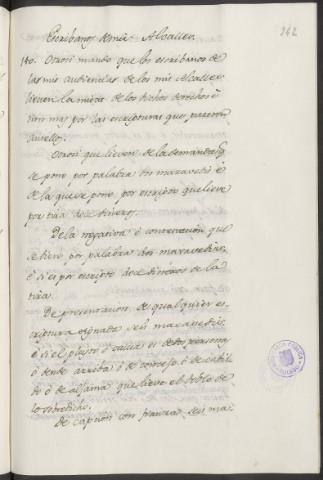 242
Escribanos de mis Alcalles.
180. Otrosi mando que los escribanos de
las mis audiencias de los mis Alcalles
lieven la mitad de los dichos derechos é
non mas por las escripturas que pasaren
antellos.
Otrosi que lieven de la demanda q̃
se pone por palabra dos maravedis é
de la que se pone por escripto que lieve
por tira doce dineros.
De la negativa é contestacion que
se ficiere por palabra dos maravedis,
é si es por escripto doce dineros de la
tira.
De presentacion de qualquier es-
criptura signada seis maravedis,
é si el pleyto ó causa es de dos personas
ó dende arriba ó de concejo ó de cabil-
do ó de aljama que lieve el doble de
lo sobredicho.
De caucion con fianza seis ma-